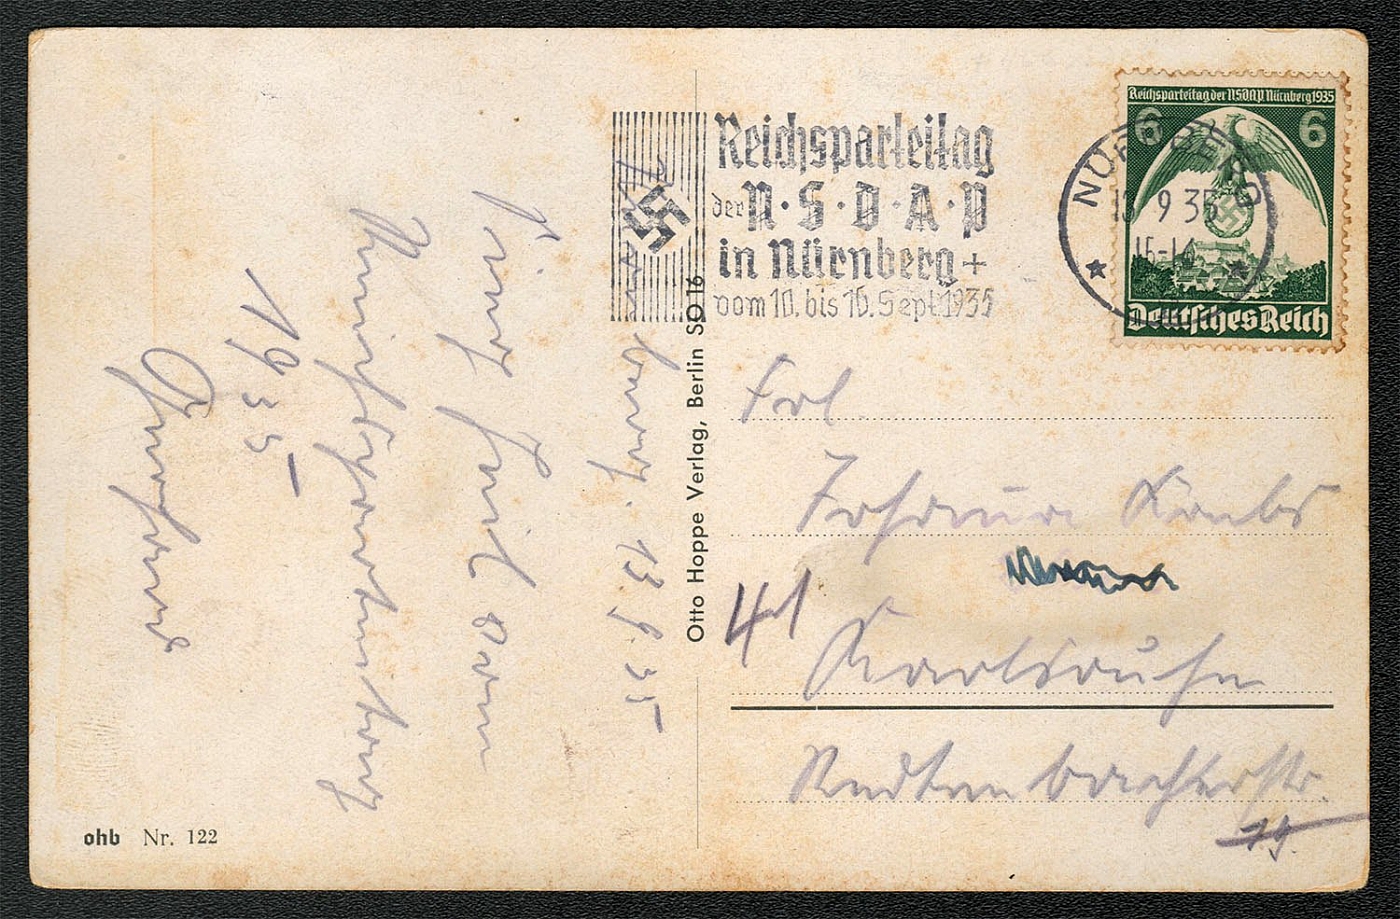 Reichsparteitag
der N·S·D·A·P
in Nürnberg +
vom 10. bis 16. Sept. 1935
Reichsparteitag der NSDAP Nürnberg 1935
6 6
Deutsches Reich
NÜRNBERG
13 9 35
Otto Hoppe Verlag, Berlin SO 16
13.9.35
Sieg Heil vom
Reichsparteitag
1935
Frl
Johanna
41
Karlsruhe
Redtenbacherstr.
19.
ohb Nr. 122